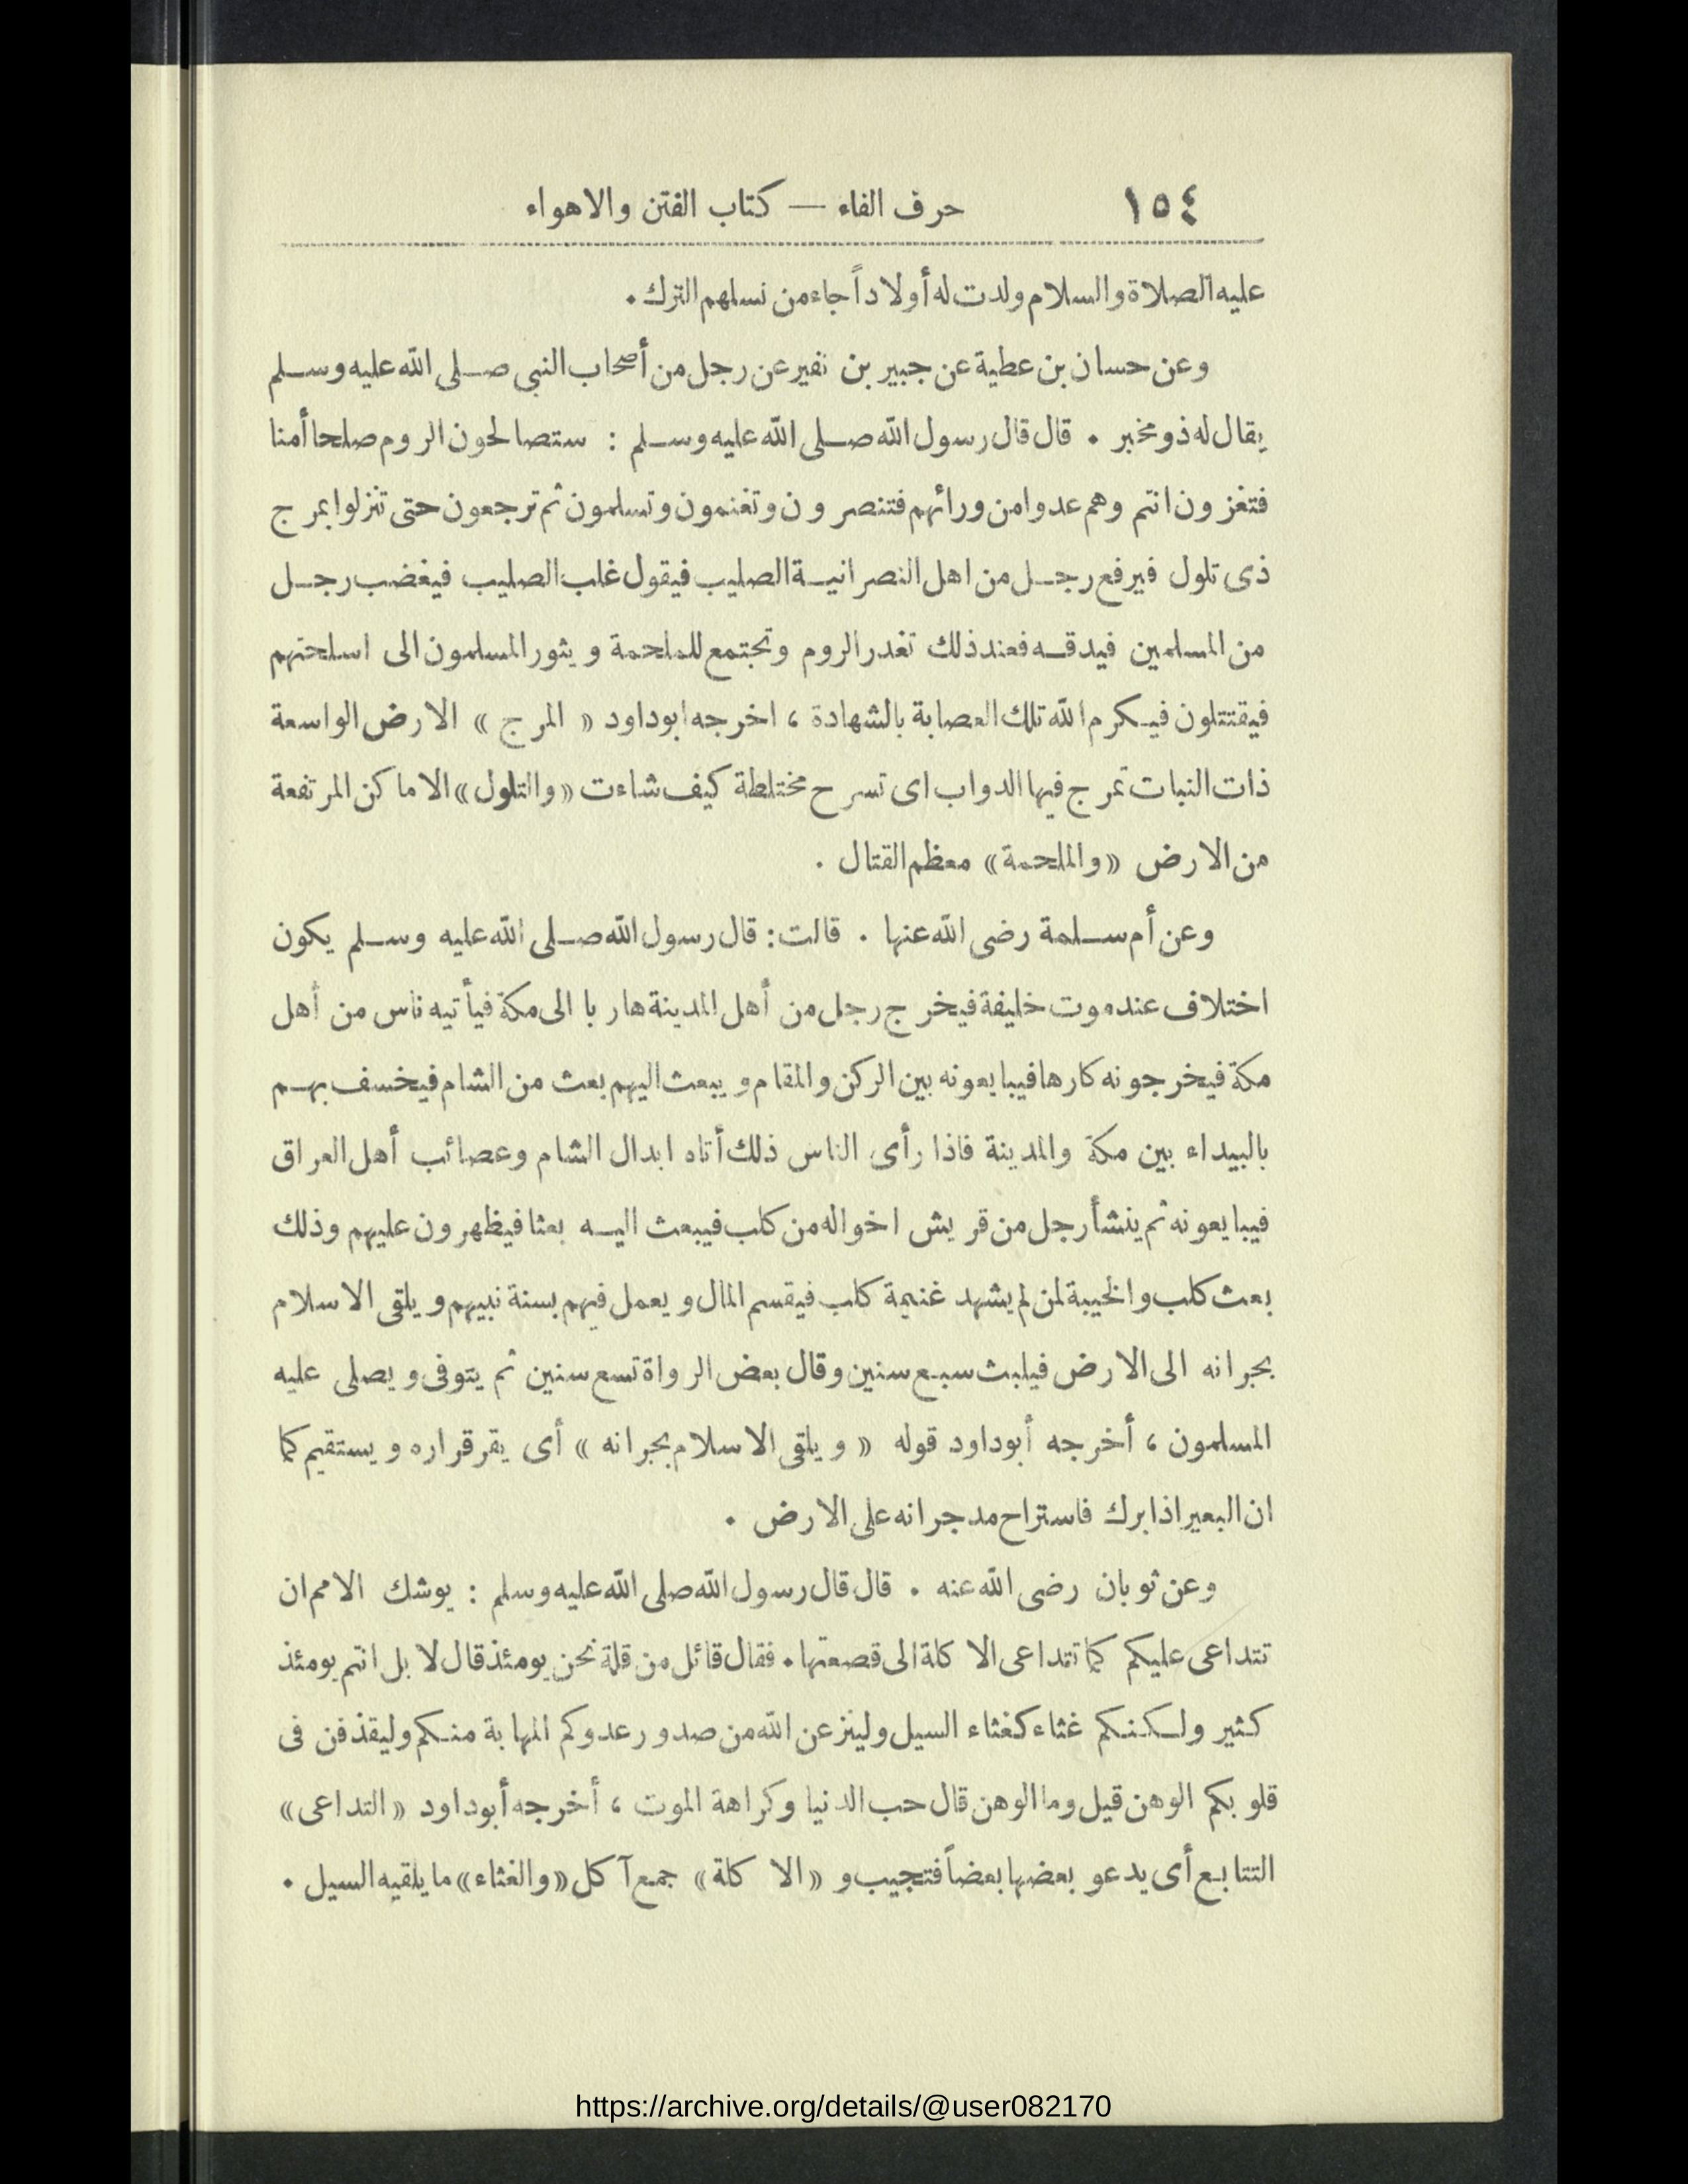 ١٥٤ حرف الفاء — كتاب الفتن والاهواء
عليه الصلاة والسلام ولدت له أولاداً جاء من نسلهم الترك .
وعن حسان بن عطية عن جبير بن نفير عن رجل من أصحاب النبي صلى الله عليه وسلم
يقال له ذو مخبر . قال قال رسول الله صلى الله عليه وسلم : ستصالحون الروم صلحا أمنا
فتغزون انتم وهم عدوا من ورائهم فتنصرون وتغنمون وتسلمون ثم ترجعون حتى تنزلوا بمرج
ذى تلول فيرفع رجل من اهل النصرانية الصليب فيقول غلب الصليب فيغضب رجل
من المسلمين فيدقه فعند ذلك تغدر الروم وتجتمع للملحمة ويثور المسلمون الى اسلحتهم
فيقتتلون فيكرم الله تلك العصابة بالشهادة ، اخرجه ابوداود « المرج » الارض الواسعة
ذات النبات تمرج فيها الدواب اى تسرح مختلطة كيف شاءت « والتلول » الاماكن المرتفعة
من الارض « والملحمة » معظم القتال .
وعن أم سلمة رضى الله عنها . قالت : قال رسول الله صلى الله عليه وسلم يكون
اختلاف عند موت خليفة فيخرج رجل من أهل المدينة هاربا الى مكة فيأتيه ناس من أهل
مكة فيخرجونه كارها فيبايعونه بين الركن والمقام ويبعث اليهم بعث من الشام فيخسف بهم
بالبيداء بين مكة والمدينة فاذا رأى الناس ذلك أتاه ابدال الشام وعصائب أهل العراق
فيبايعونه ثم ينشأ رجل من قريش اخواله من كلب فيبعث اليه بعثا فيظهرون عليهم وذلك
بعث كلب والخيبة لمن لم يشهد غنيمة كلب فيقسم المال ويعمل فيهم بسنة نبيهم ويلقى الاسلام
بجرانه الى الارض فيلبث سبع سنين وقال بعض الرواة تسع سنين ثم يتوفى ويصلى عليه
المسلمون ، أخرجه أبوداود قوله « ويلقى الاسلام بجرانه » أى يقر قراره ويستقيم كما
ان البعير اذا برك فاستراح مد جرانه على الارض .
وعن ثوبان رضى الله عنه . قال قال رسول الله صلى الله عليه وسلم : يوشك الامم ان
تتداعى عليكم كما تتداعى الاكلة الى قصعتها . فقال قائل من قلة نحن يومئذ قال لا بل انتم يومئذ
كثير ولكنكم غثاء كغثاء السيل ولينزعن الله من صدور عدوكم المهابة منكم وليقذفن فى
قلوبكم الوهن قيل وما الوهن قال حب الدنيا وكراهة الموت ، أخرجه أبوداود « التداعى »
التتابع أى يدعو بعضها بعضاً فتجيب و « الاكلة » جمع آكل « والغثاء » ما يلقيه السيل .
https://archive.org/details/@user082170